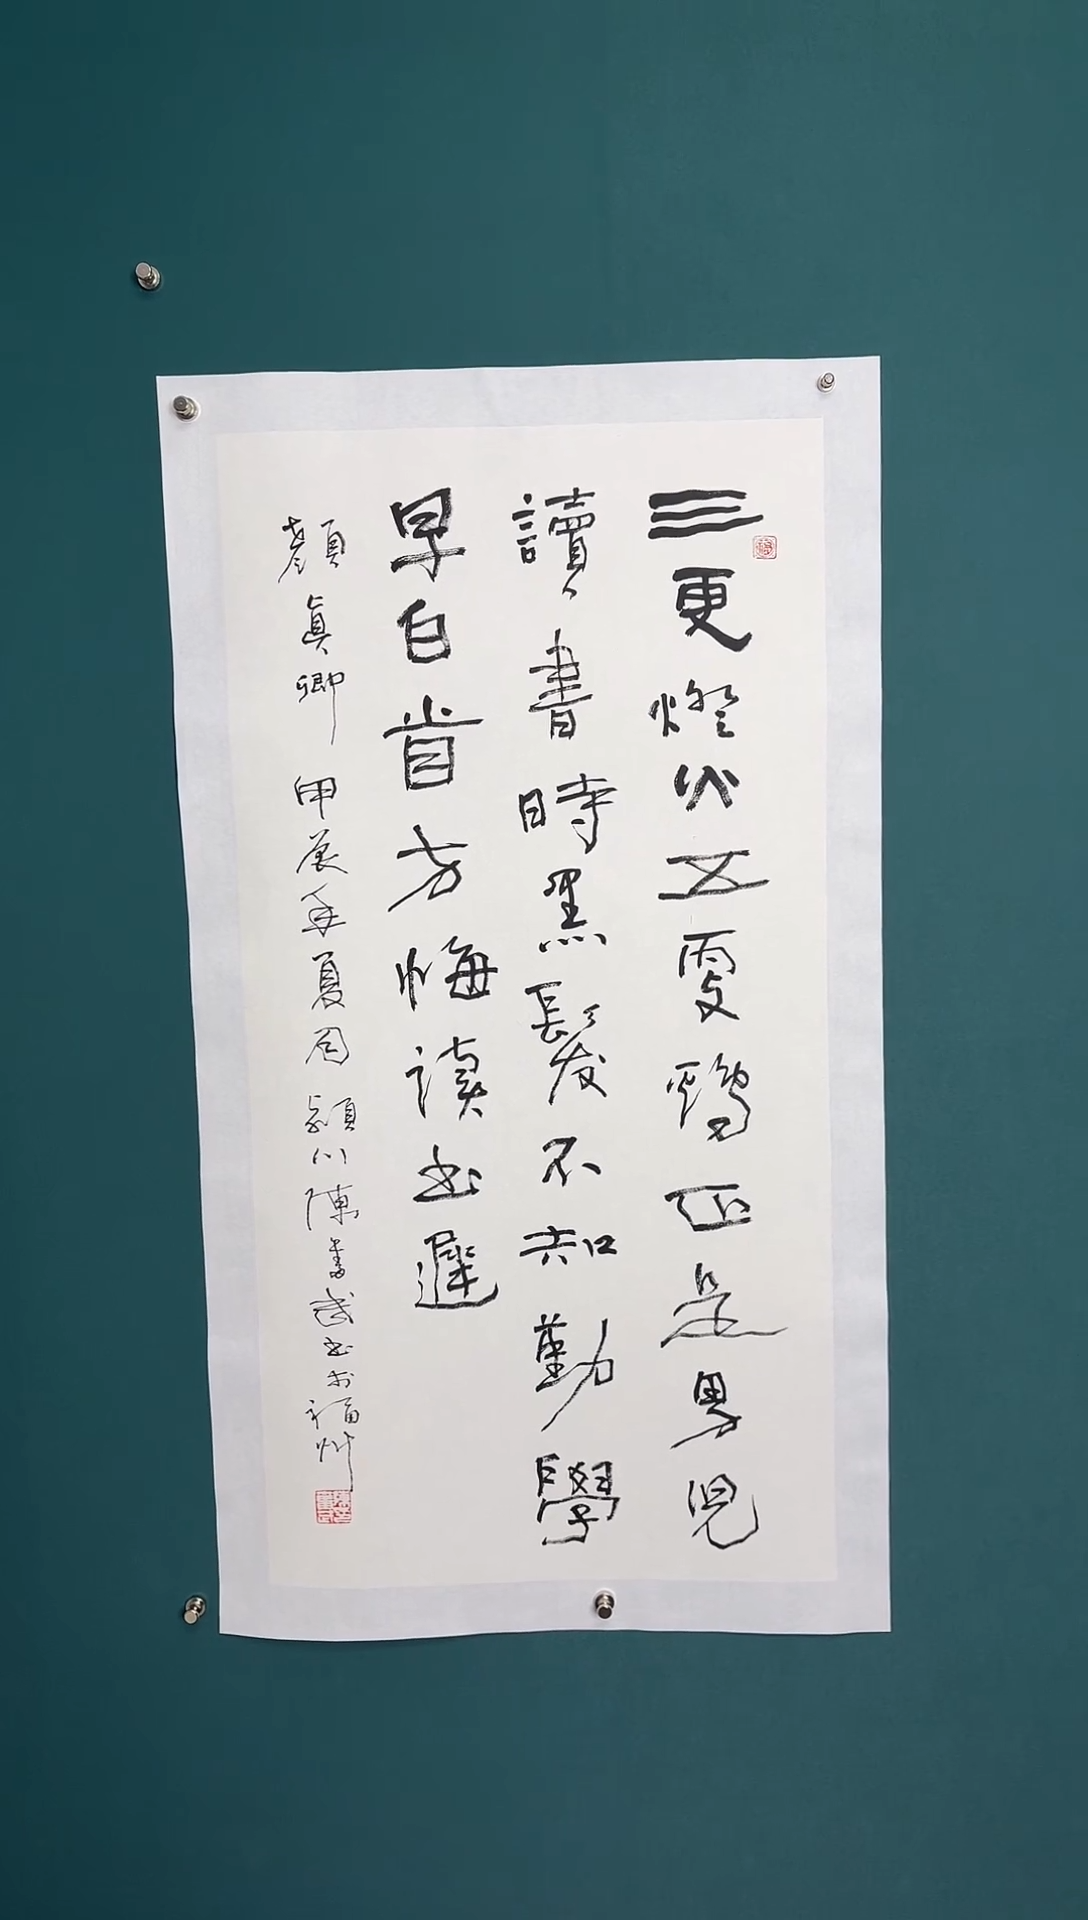 三更燈火五更鷄正是男兒
讀書時黑髮不知勤學
早白首方悔讀書遲
顏眞卿 甲辰年夏 潁川陳奮武書於福州